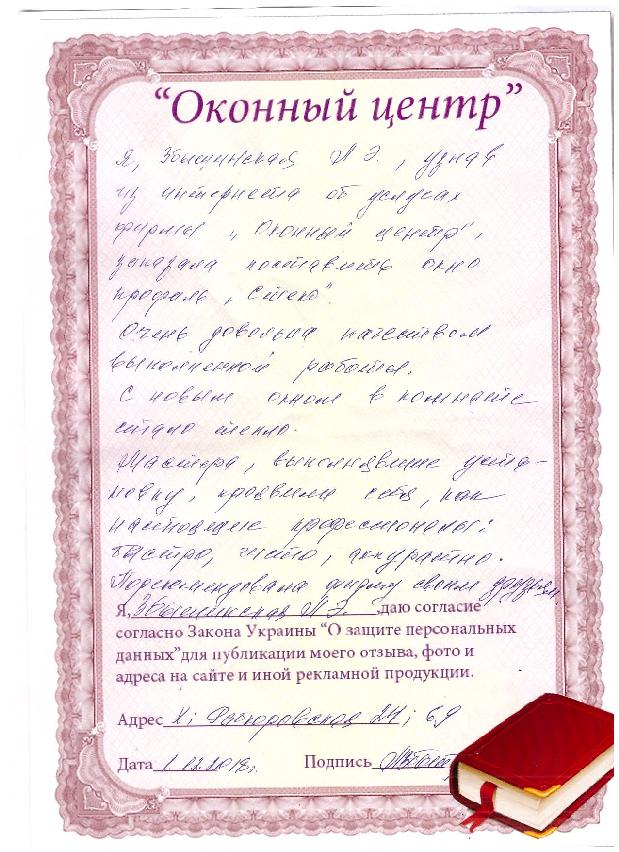 “Оконный центр”
Я, Збышинская Л Э., узнав
из интернета об услугах
фирмы „Оконный центр",
заказала поставить окно
профиль „Стеко".
Очень довольна качеством
выполненной работы.
С новым окном в комнате
стало тепло.
Мастера, выполнявшие уста-
новку, проявили себя, как
настоящие профессионалы:
быстро, чисто, аккуратно.
Порекомендовала фирму своим друзьям.
Я, Збышинская Л Э. ,даю согласие
согласно Закона Украины “О защите персональных
данных”для публикации моего отзыва, фото и
адреса на сайте и иной рекламной продукции.
Адрес 24, 69
Дата 1.12.2018г. Подпись